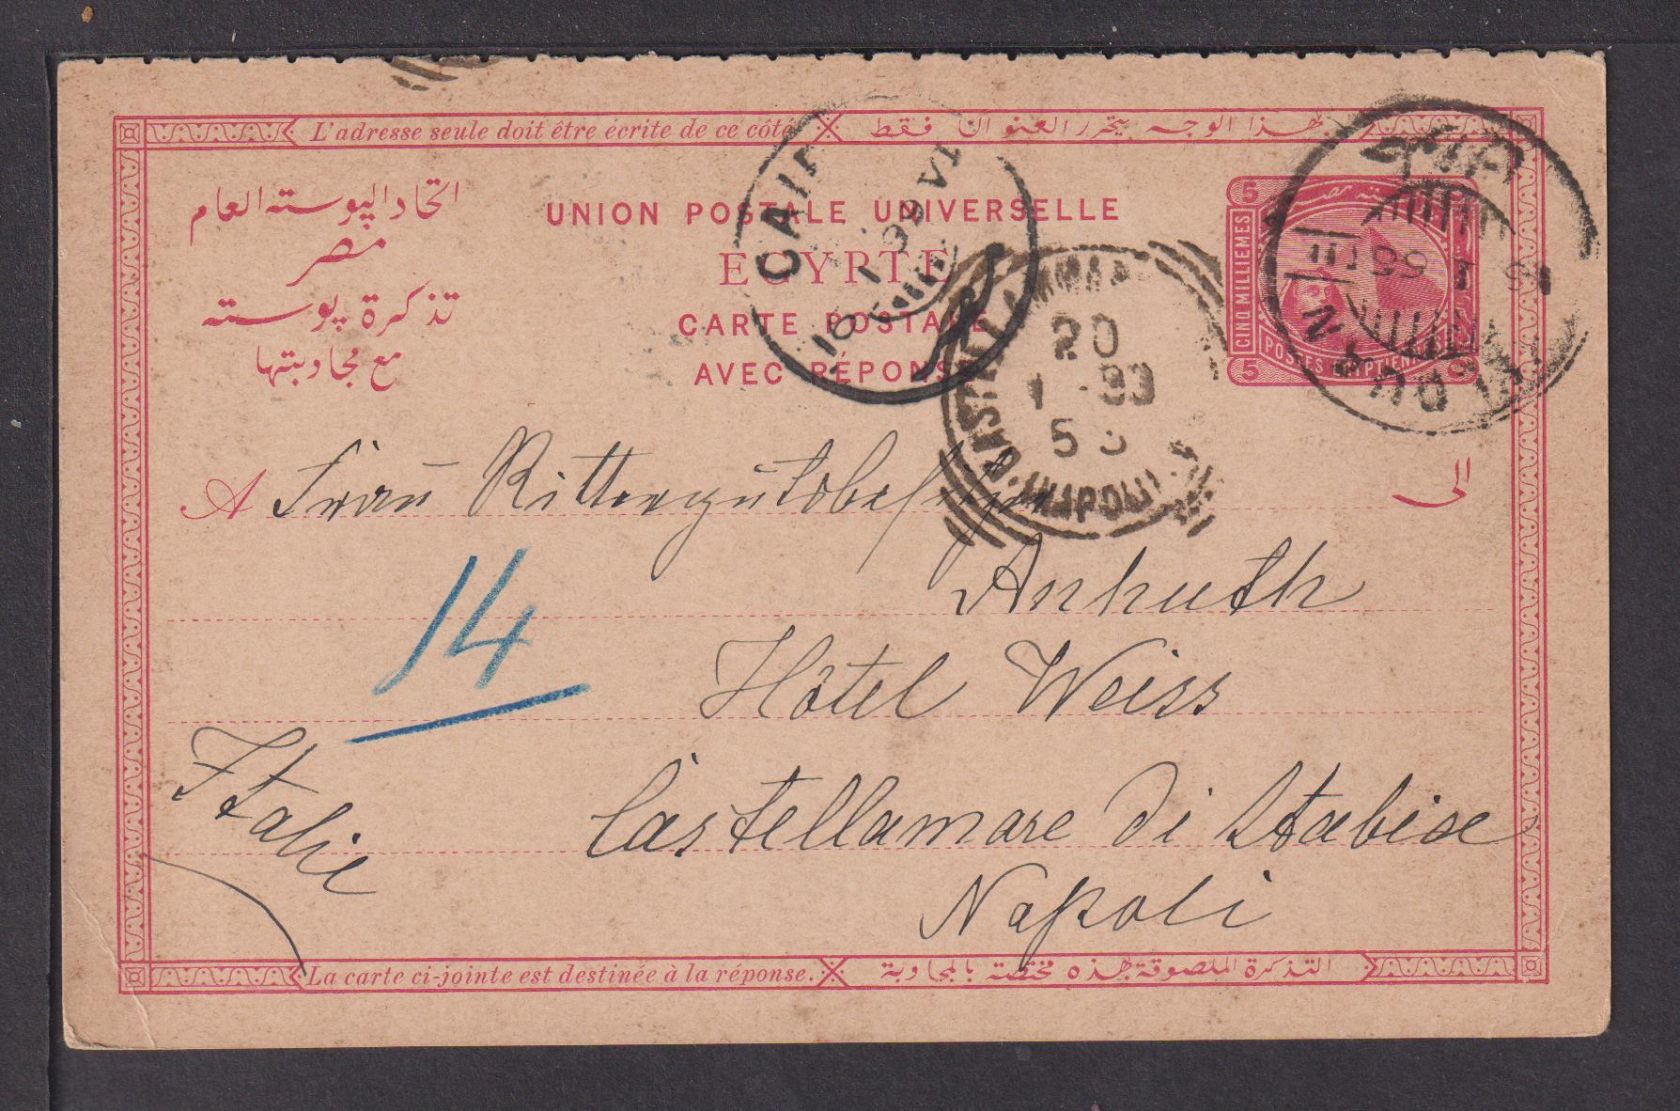 L'adresse seule doit être écrite de ce côté
بهذا الوجه يتحرر العنوان فقط
اتحاد البوسته العام
مصر
تذكرة بوسته
مع مجاوبتها
UNION POSTALE UNIVERSELLE
EGYPTE
CARTE POSTALE
AVEC RÉPONSE
5 5
CINQ MILLIEMES
POSTES EGYPTIENNES
5
CAIR
10 I 99 VI
CASTELLAMMAR
20
1 - 99
5 S
(NAPOLI)
A Frau Rittergutsbesitzer
الى
Anhuth
14
Hôtel Weiss
Italie
Castellamare di Stabiae
Napoli
La carte ci-jointe est destinée à la réponse.
التذكرة الملصوقة بهذه مختصة بالمجاوبة